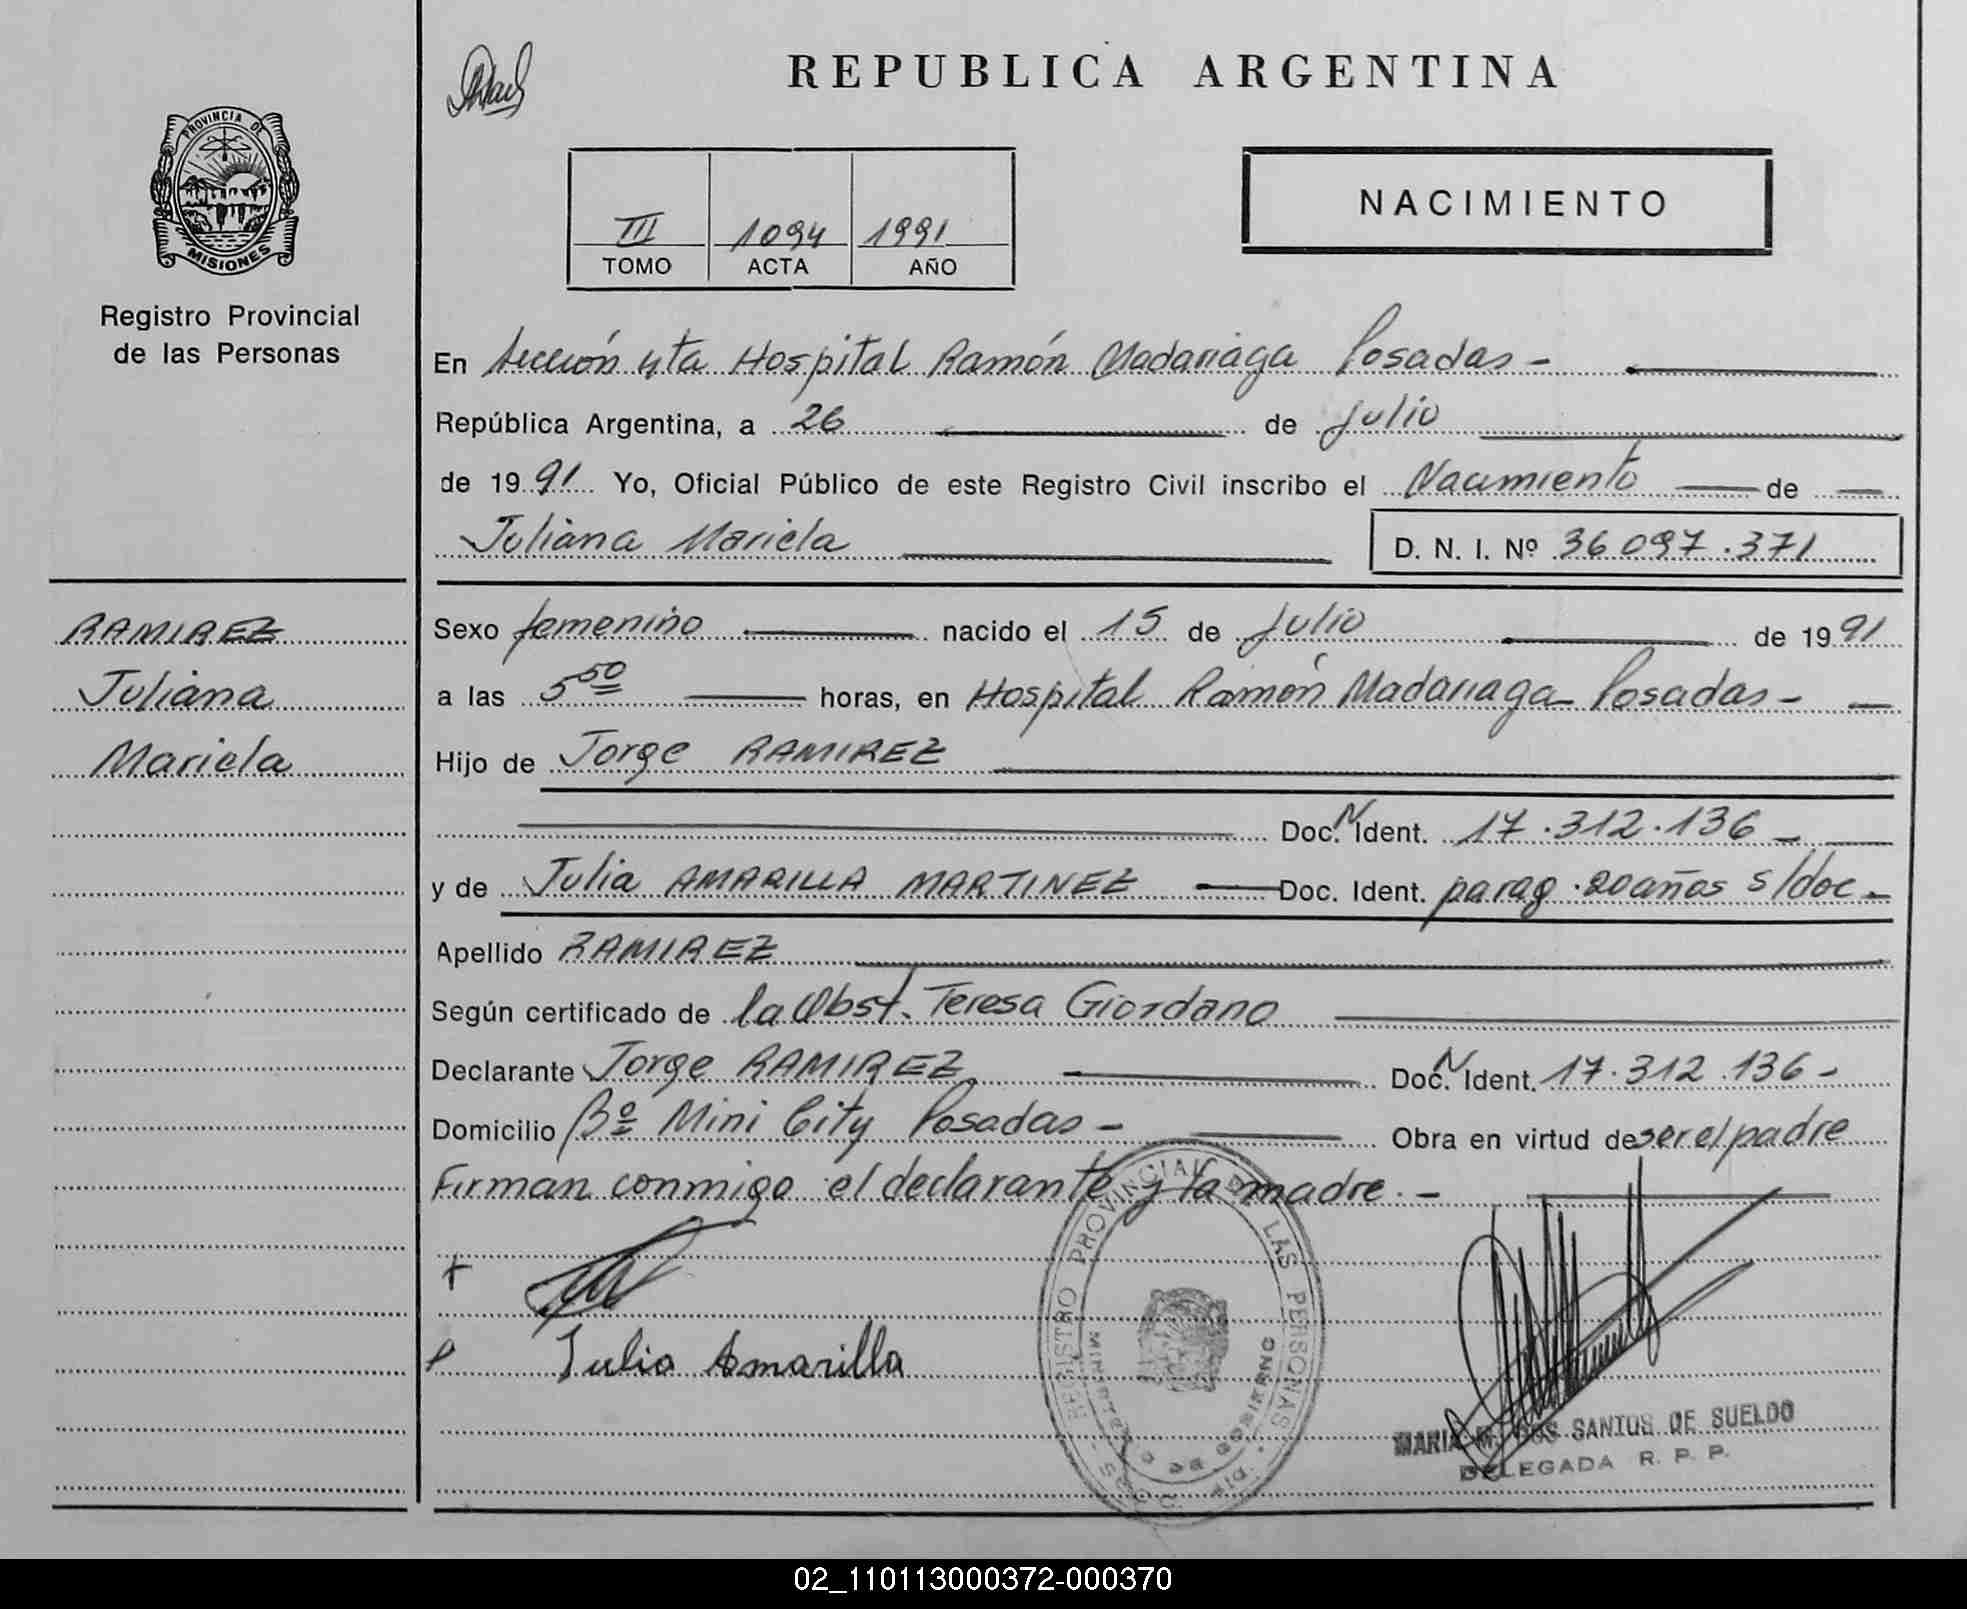 REPUBLICA ARGENTINA
PROVINCIA DE
MISIONES
Registro Provincial
de las Personas
III 1094 1991
TOMO ACTA AÑO
NACIMIENTO
En Sección 4ta Hospital Ramón Madariaga Posadas -
República Argentina, a 26 de Julio
de 1991 Yo, Oficial Público de este Registro Civil inscribo el Nacimiento de
Juliana Mariela D. N. I. Nº 36 097.371
RAMIREZ
Juliana
Mariela
Sexo femenino nacido el 15 de Julio de 1991
a las 5 50 horas, en Hospital Ramón Madariaga Posadas -
Hijo de Jorge RAMIREZ
Doc. N Ident. 17.312.136 -
y de Julia AMARILLA MARTINEZ Doc. Ident. parag. 20 años s/doc -
Apellido RAMIREZ
Según certificado de la Obst. Teresa Giordano
Declarante Jorge RAMIREZ Doc. N Ident. 17.312.136 -
Domicilio Bº Mini City Posadas - Obra en virtud de ser el padre
Firman conmigo el declarante y la madre. -
Julia Amarilla
REGISTRO PROVINCIAL DE LAS PERSONAS
MINISTERIO DE GOBIERNO
MARIA M. DOS SANTOS DE SUELDO
DELEGADA R. P. P.
02_110113000372-000370